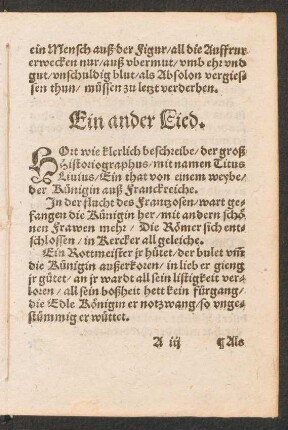 ein Mensch auß der Figur/all die Auffrur
erwecken nur/auß vbermut/vmb ehr vnd
gut/vnschuldig blut/als Absolon vergies⸗
sen thun/ müssen zu letzt verderben.
Ein ander Lied.
HOrt wie klerlich beschreibe/der groß
Historiographus/mit namen Titus
Liuius/Ein that von einem weybe/
der Künigin auß Franckreiche.
In der flucht des Frantzosen/wart ge⸗
fangen die Künigin her/mit andern schö⸗
nen Frawen mehr/ Die Römer sich ent⸗
schlossen/in Kercker all geleiche.
Ein Rottmeister jr hütet/der bulet vm̃
die Künigin außerkoren/in lieb er gieng
jr gütet/an jr wardt all sein listigkeit ver⸗
loren/all sein boßheit hett kein fürgang/
die Edle Königin er notzwang/so vnge⸗
stümmig er wüttet.
A iij ¶Als